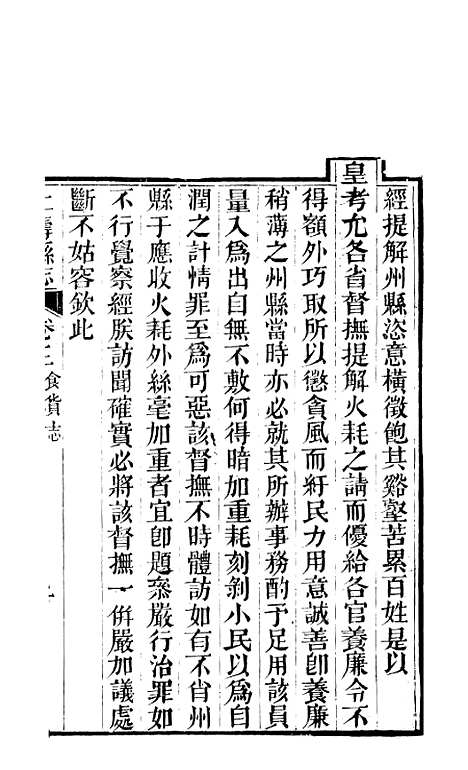 經提解州縣恣意橫徵飽其谿壑苦累百姓是以
皇考允各省督撫提解火耗之請而優給各官養廉令不
得額外巧取所以懲貪風而紓民力用意誠善卽養廉
稍薄之州縣當時亦必就其所辦事務酌于足用該員
量入爲出自無不敷何得暗加重耗刻剝小民以爲自
潤之計情罪至爲可惡該督撫不時體訪如有不肖州
縣于應收火耗外絲毫加重者宜卽題叅嚴行治罪如
不行覺察經朕訪聞確實必將該督撫一倂嚴加議處
斷不姑容欽此
壽縣志 食貨志